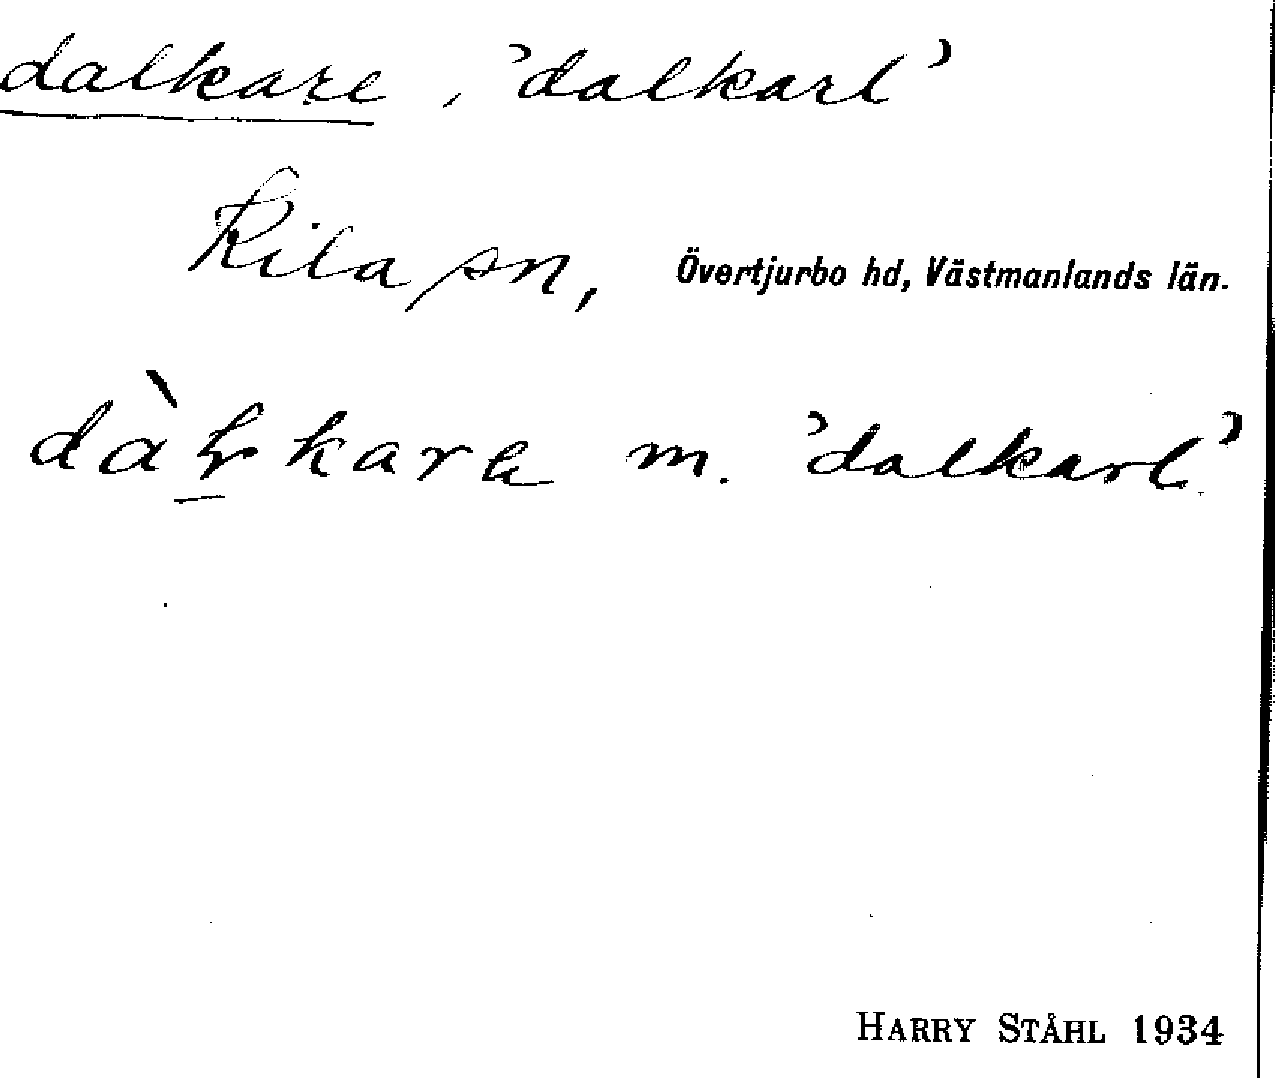 dalkare, 'dalkarl'
Kila sn, Övertjurbo hd, Västmanlands län.
m. 'dalkarl'
HARRY STÅHL 1934